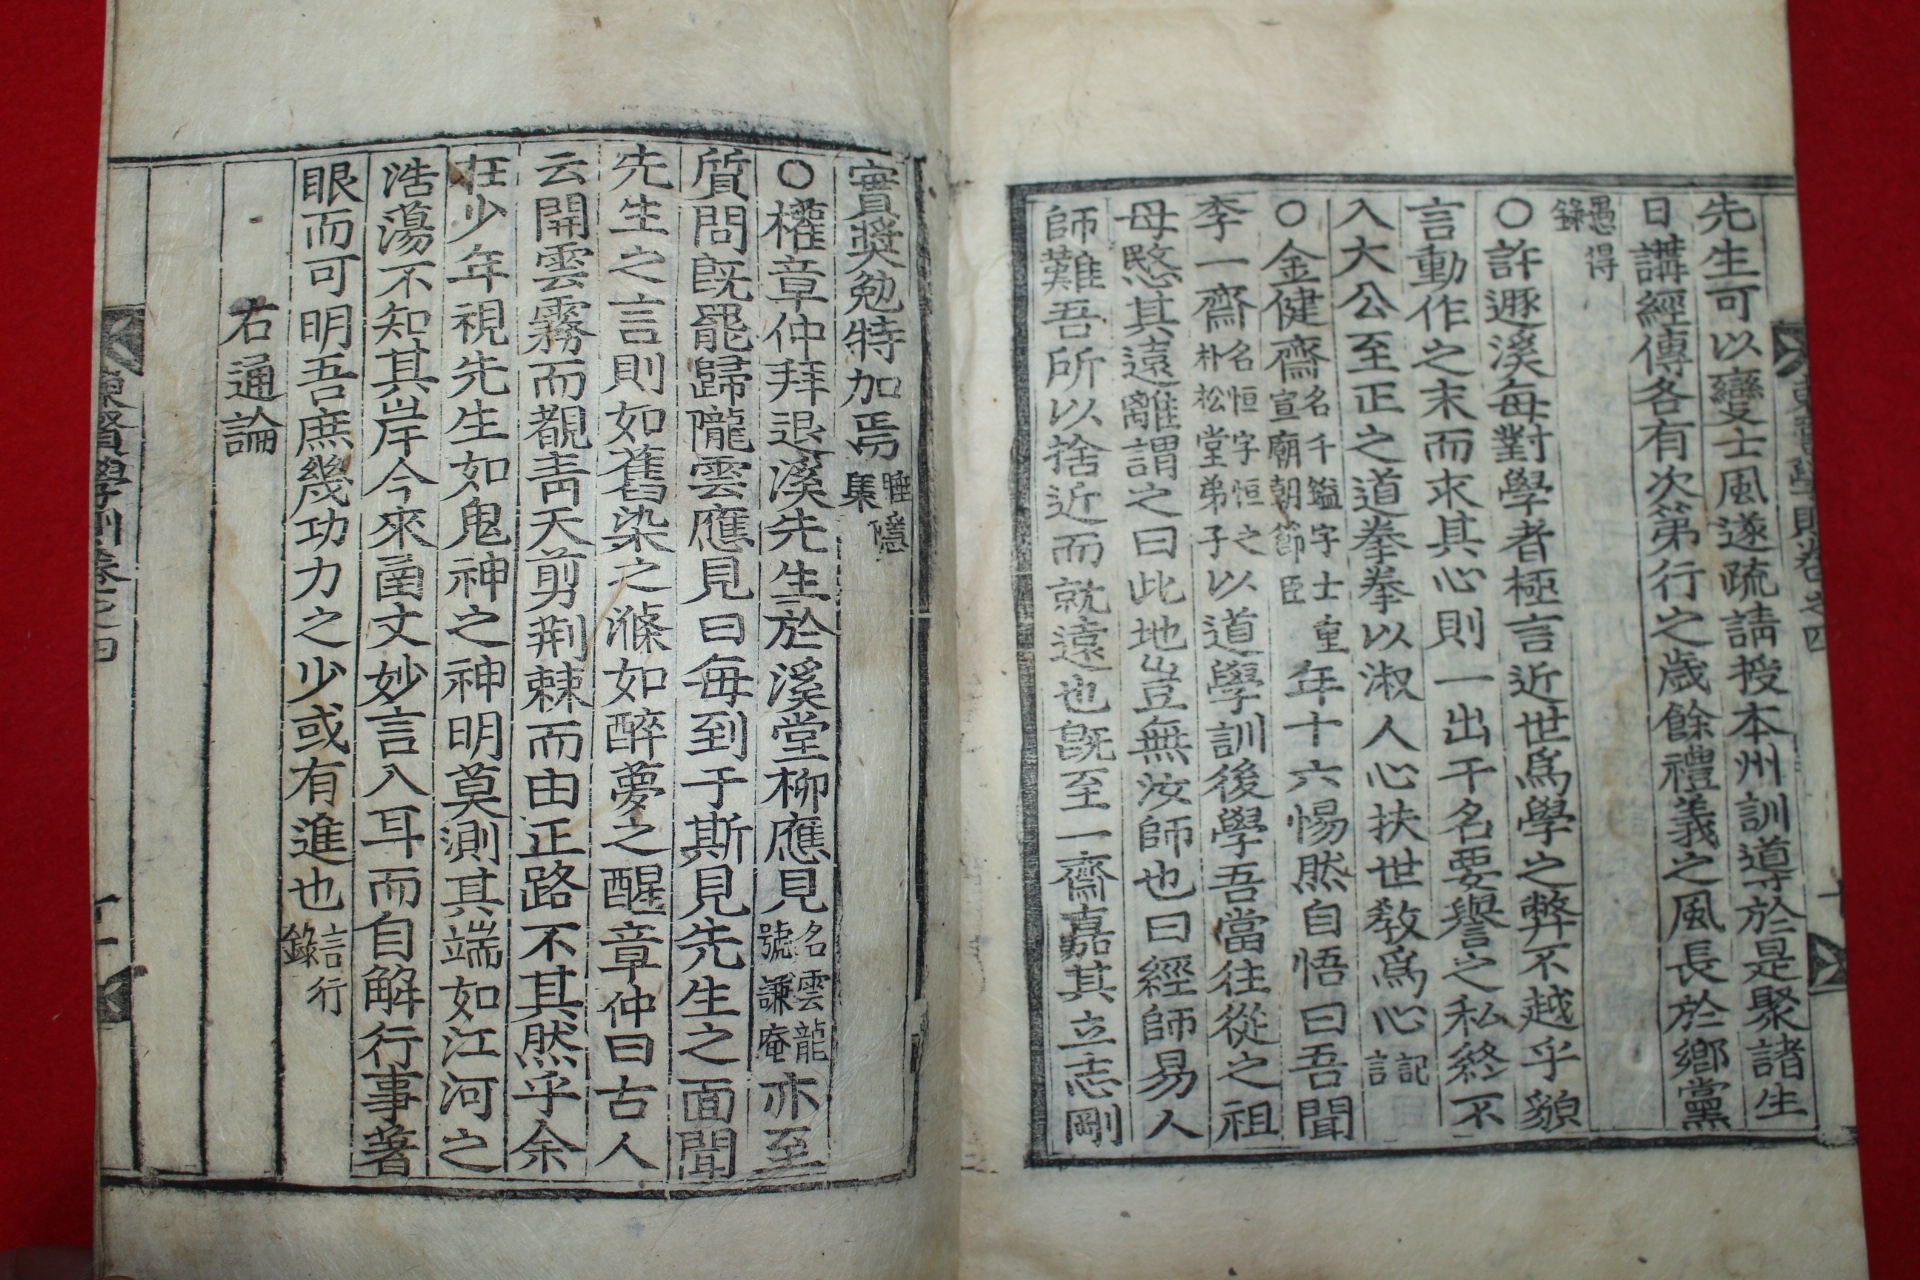 先生可以變士風遂疏請授本州訓導於是聚諸生
日講經傳各有次第行之歲餘禮義之風長於鄉黨
愚得
錄
○許遯溪每對學者極言近世爲學之弊不越乎貌
言動作之末而求其心則一出干名要譽之私終不
入大公至正之道拳拳以淑人心扶世敎爲心記言
○金健齋名千鎰字士重宣廟朝節臣年十六惕然自悟曰吾聞
李一齋名恒字恒之朴松堂弟子以道學訓後學吾當往從之祖
母愍其遠離謂之曰此地豈無汝師也曰經師易人
師難吾所以捨近而就遠也旣至一齋嘉其立志剛
實奬勉特加焉睡隱集
○權章仲拜退溪先生於溪堂柳應見名雲龍號謙庵亦至
質問旣罷歸隴雲應見曰每到于斯見先生之面聞
先生之言則如舊染之滌如醉夢之醒章仲曰古人
云開雲霧而覩靑天剪荆棘而由正路不其然乎余
在少年視先生如鬼神之神明莫測其端如江河之
浩蕩不知其岸今來函丈妙言入耳而自解行事著
眼而可明吾庶幾功力之少或有進也言行錄
右通論
東賢學則卷之四
十一